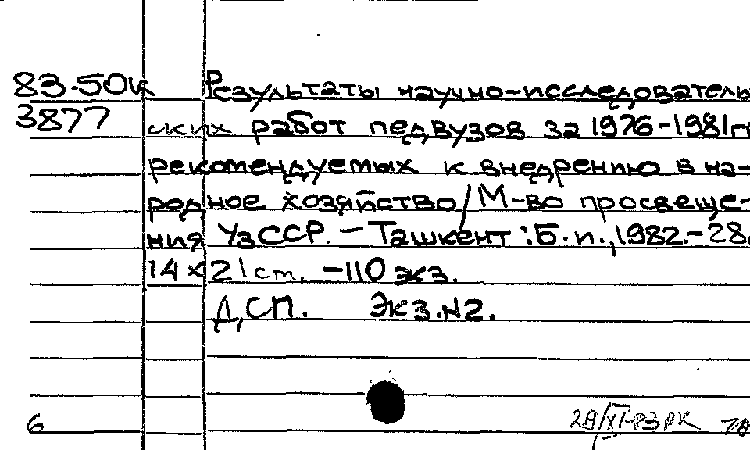 83-50к Результаты научно-исследователь
3877 ских работ педвузов за 1976-1981гг
рекомендуемых к внедрению в на-
родное хозяйство/М-во просвеще-
ния УзССР. - Ташкент: Б.и., 1982.-28
14 х 21 ст. -110 экз.
ДСП. Экз.N2.
6 28/XI-83